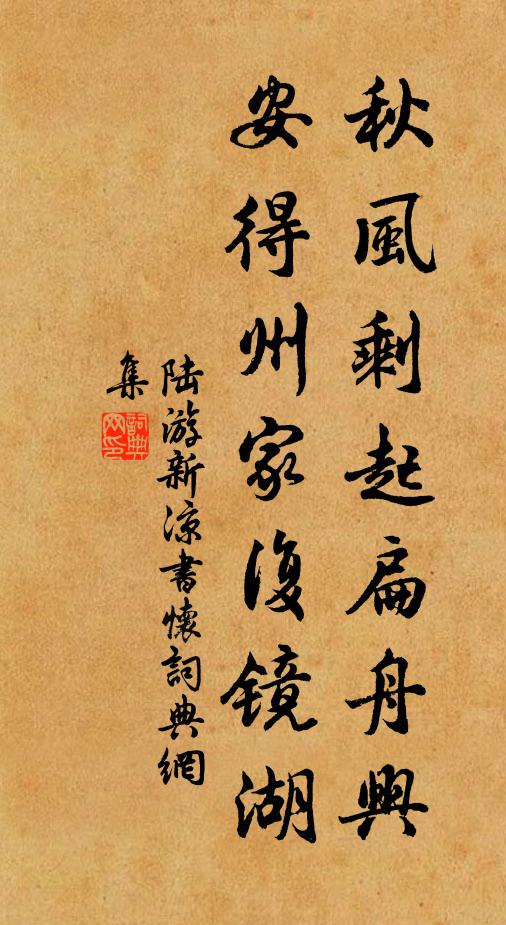 秋風剩起扁舟興
安得州家復镜湖
陆游新凉書懷詞典網
集
詞典网印